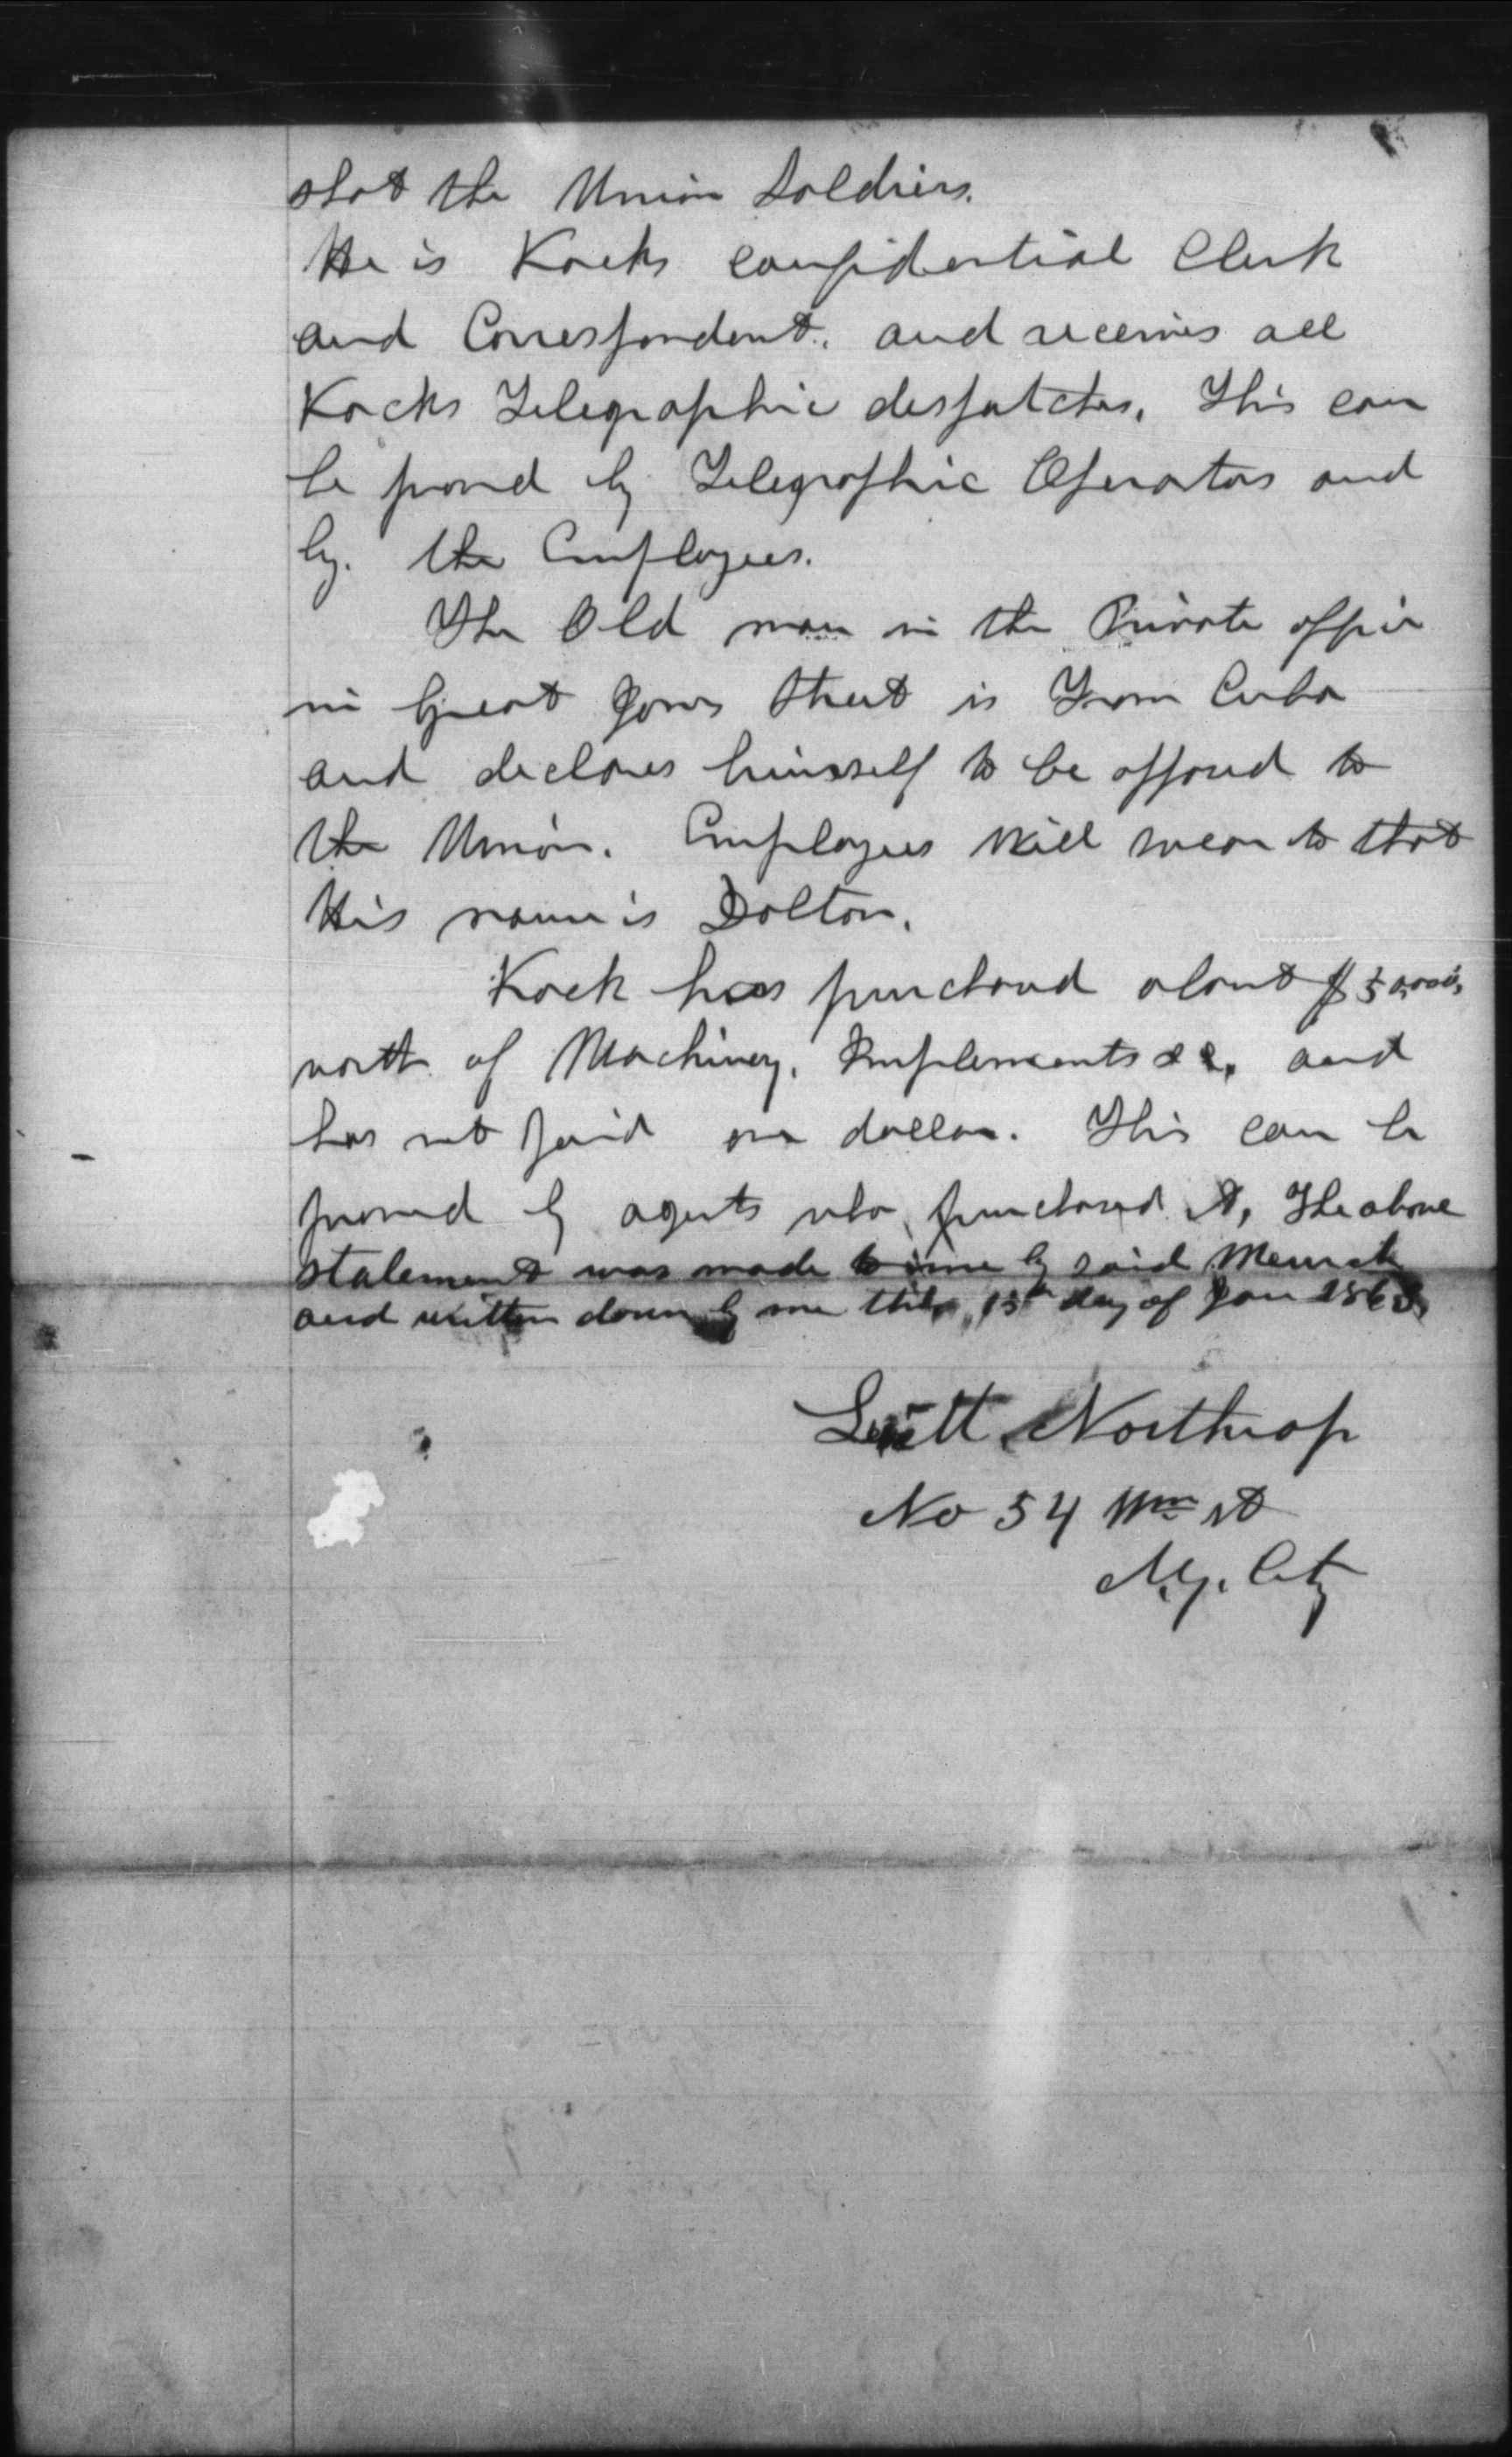 shot the Union Soldiers.
He is Kocks confidential Clerk
and Correspondent. and receives all
Kocks Telegraphic despatches. This can
be proved by Telegraphic Operators and
by. the Employees.
The Old man in the Private office
in Great Jones Street is from Cuba
and declares himself to be opposed to
the Union. Employees will swear to that
His name is Dolton.
Kock has purchased about $50,000,
worth of Machinery, Implements &c, and
has not paid one dollar. This can be
proved by agents who purchased it, The above
statement was made to me by said
and written down by me this 15th day of Jan 1863
Northrop
No 54 Wm st
N.Y. City